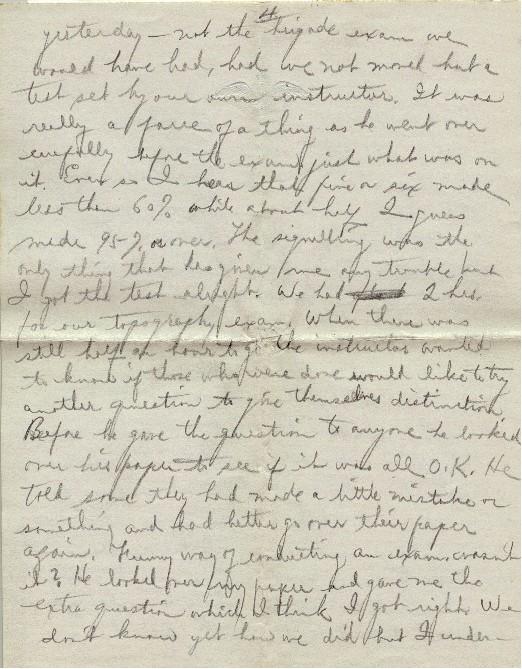 4
yesterday - not the brigade exam we
would have had, had we not moved but a
test set by our own instructor. It was
really a farce of a thing as he went over
carefully before the exam just what was on
it. Even so I hear that five or six made
less than 60% while about half I guess
made 95% or over. The signalling was the
only thing that has given me any trouble but
I got the test alright. We had 2 hrs.
for our topography exam. When there was
still half an hour to go the instructor wanted
to know if those who were done would like to try
another question to give themselves distinction.
Before he gave the question to anyone he looked
over his paper to see if it was all O.K. He
told some they had made a little mistake or
something and had better go over their paper
again. Funny way of conducting an exam wasn't
it? He looked over my paper and gave me the
extra question which I think I got right. We
don't know yet how we did but I under-